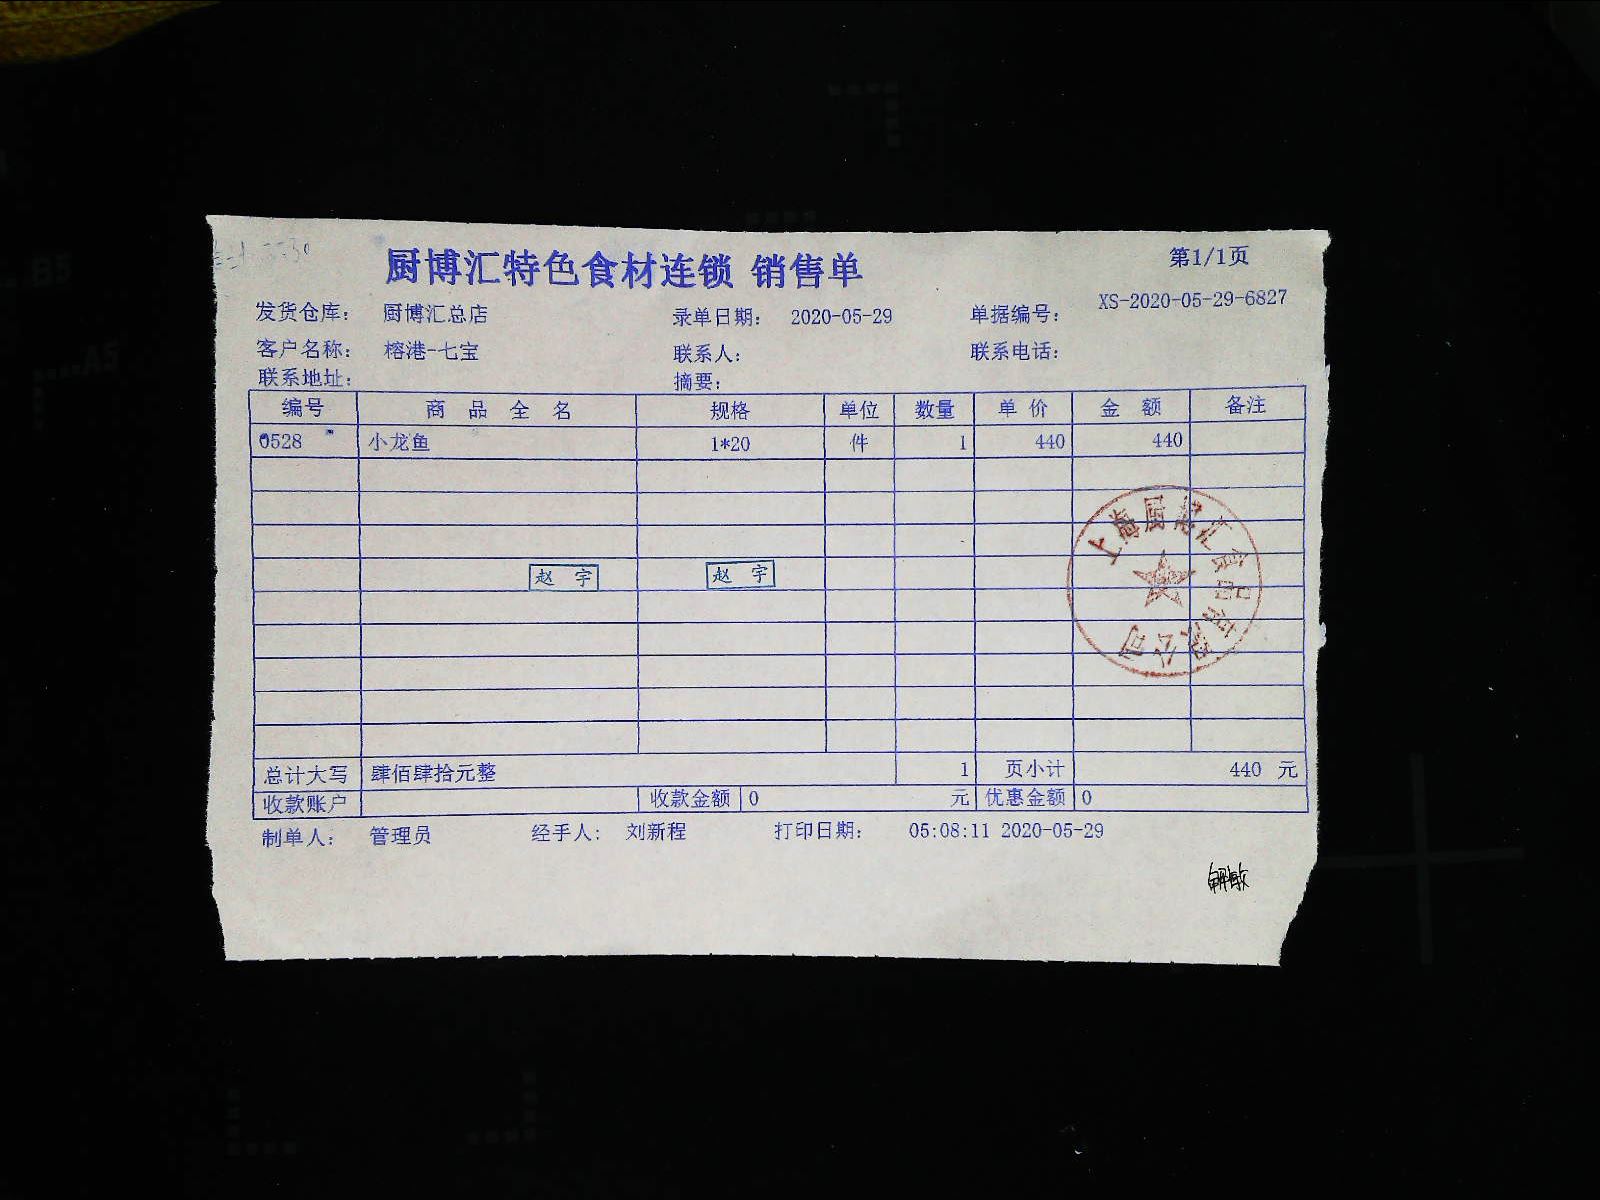 厨博汇特色食材连锁 销售单
第1/1页
发货仓库： 厨博汇总店 录单日期： 2020-05-29 单据编号： XS-2020-05-29-6827
客户名称： 榕港-七宝 联系人： 联系电话：
联系地址： 摘要：
编号 商品全名 规格 单位 数量 单价 金额 备注
0528 小龙鱼 1*20 件 1 440 440
上海厨悠汇食品有限公司
赵 宇 赵 宇
总计大写 肆佰肆拾元整 1 页小计 440 元
收款账户 收款金额 0 元 优惠金额 0
制单人： 管理员 经手人： 刘新程 打印日期： 05:08:11 2020-05-29